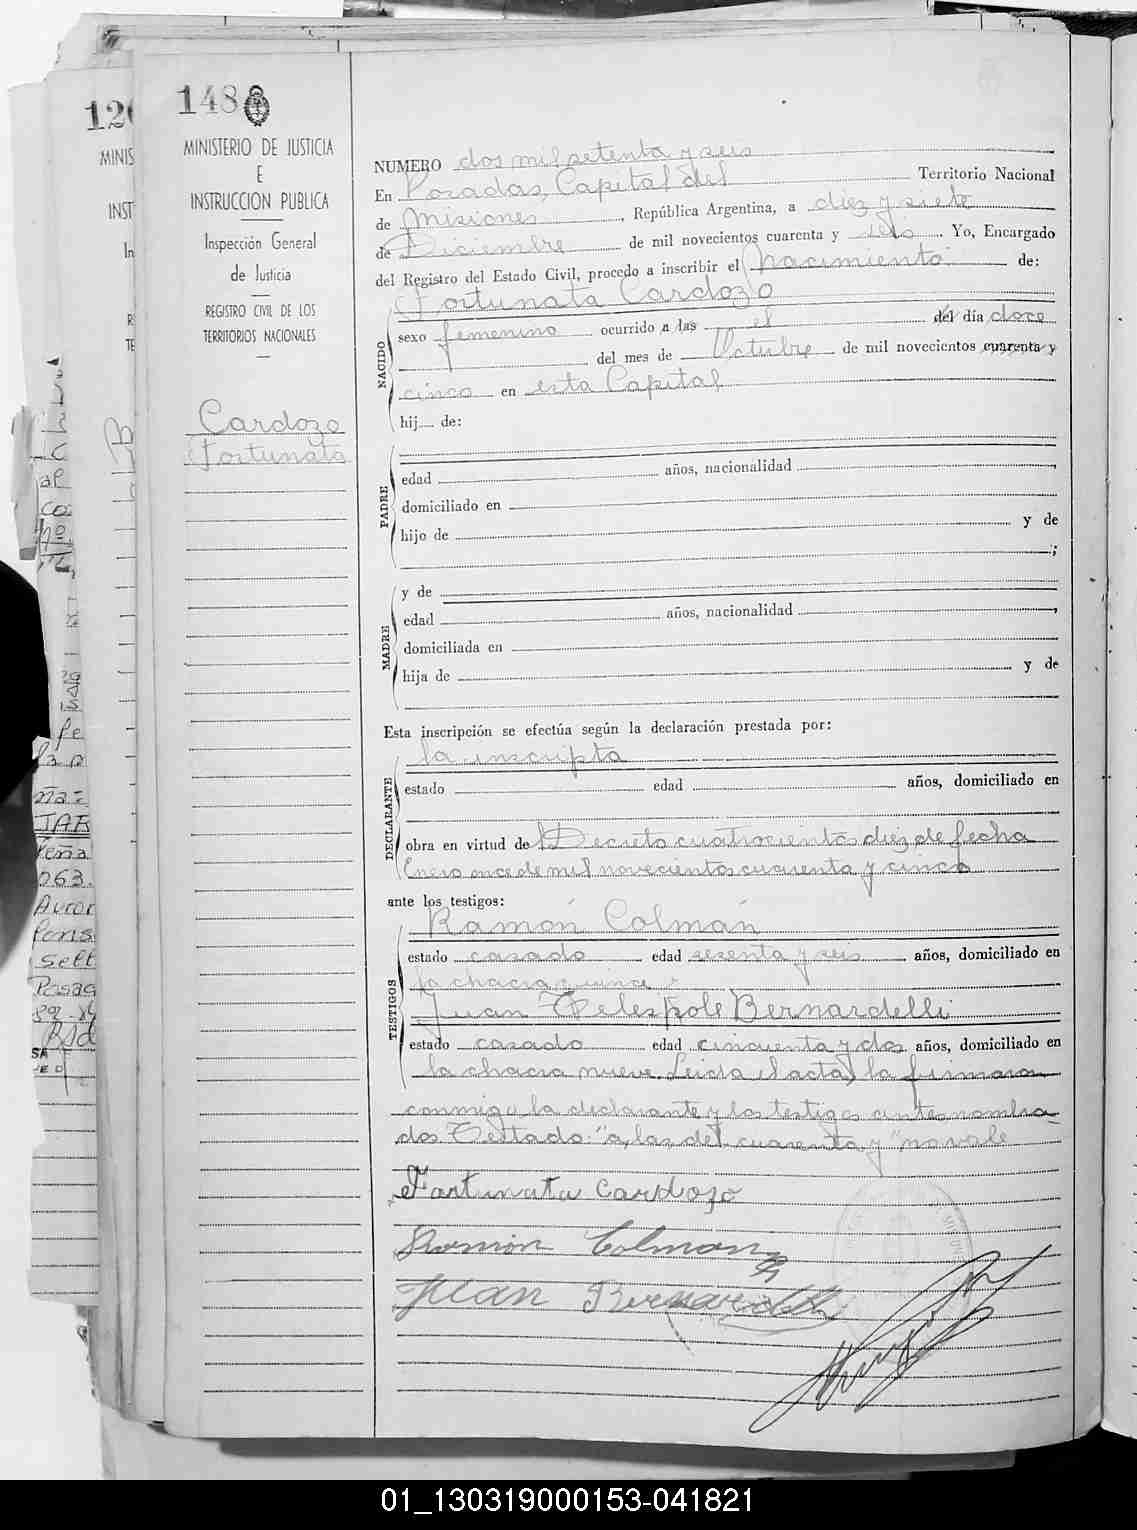 148
MINISTERIO DE JUSTICIA
E
INSTRUCCION PUBLICA
Inspección General
de Justicia
REGISTRO CIVIL DE LOS
TERRITORIOS NACIONALES
Cardozo
Fortunata
NUMERO dos mil setenta y seis
En Posadas, Capital del Territorio Nacional
de Misiones, República Argentina, a diez y siete
de Diciembre de mil novecientos cuarenta y seis. Yo, Encargado
del Registro del Estado Civil, procedo a inscribir el nacimiento de:
NACIDO
Fortunata Cardozo
sexo femenino ocurrido a las el del día doce
del mes de Octubre de mil novecientos cuarenta y
cinco en esta Capital
hij de:
PADRE
edad años, nacionalidad ,
domiciliado en
hijo de y de
;
MADRE
y de
edad años, nacionalidad ,
domiciliada en
hija de y de
Esta inscripción se efectúa según la declaración prestada por:
DECLARANTE
la inscripta
estado edad años, domiciliado en
obra en virtud de Decreto cuatrocientos diez de fecha
Enero once de mil novecientos cuarenta y cinco
ante los testigos:
TESTIGOS
Ramón Colmán
estado casado edad sesenta y seis años, domiciliado en
la chacra quince
Juan Bernardelli
estado casado edad cincuenta y dos años, domiciliado en
la chacra nueve. Leida el acta, la firmaron
conmigo la declarante y los testigos antes nombra-
dos. Testado: "a, las, del, cuarenta y" no vale
Fortunata Cardozo
Ramón Colman
Juan Bernardelli
120
MINIS
INST
In
R
TE
063.
01_130319000153-041821